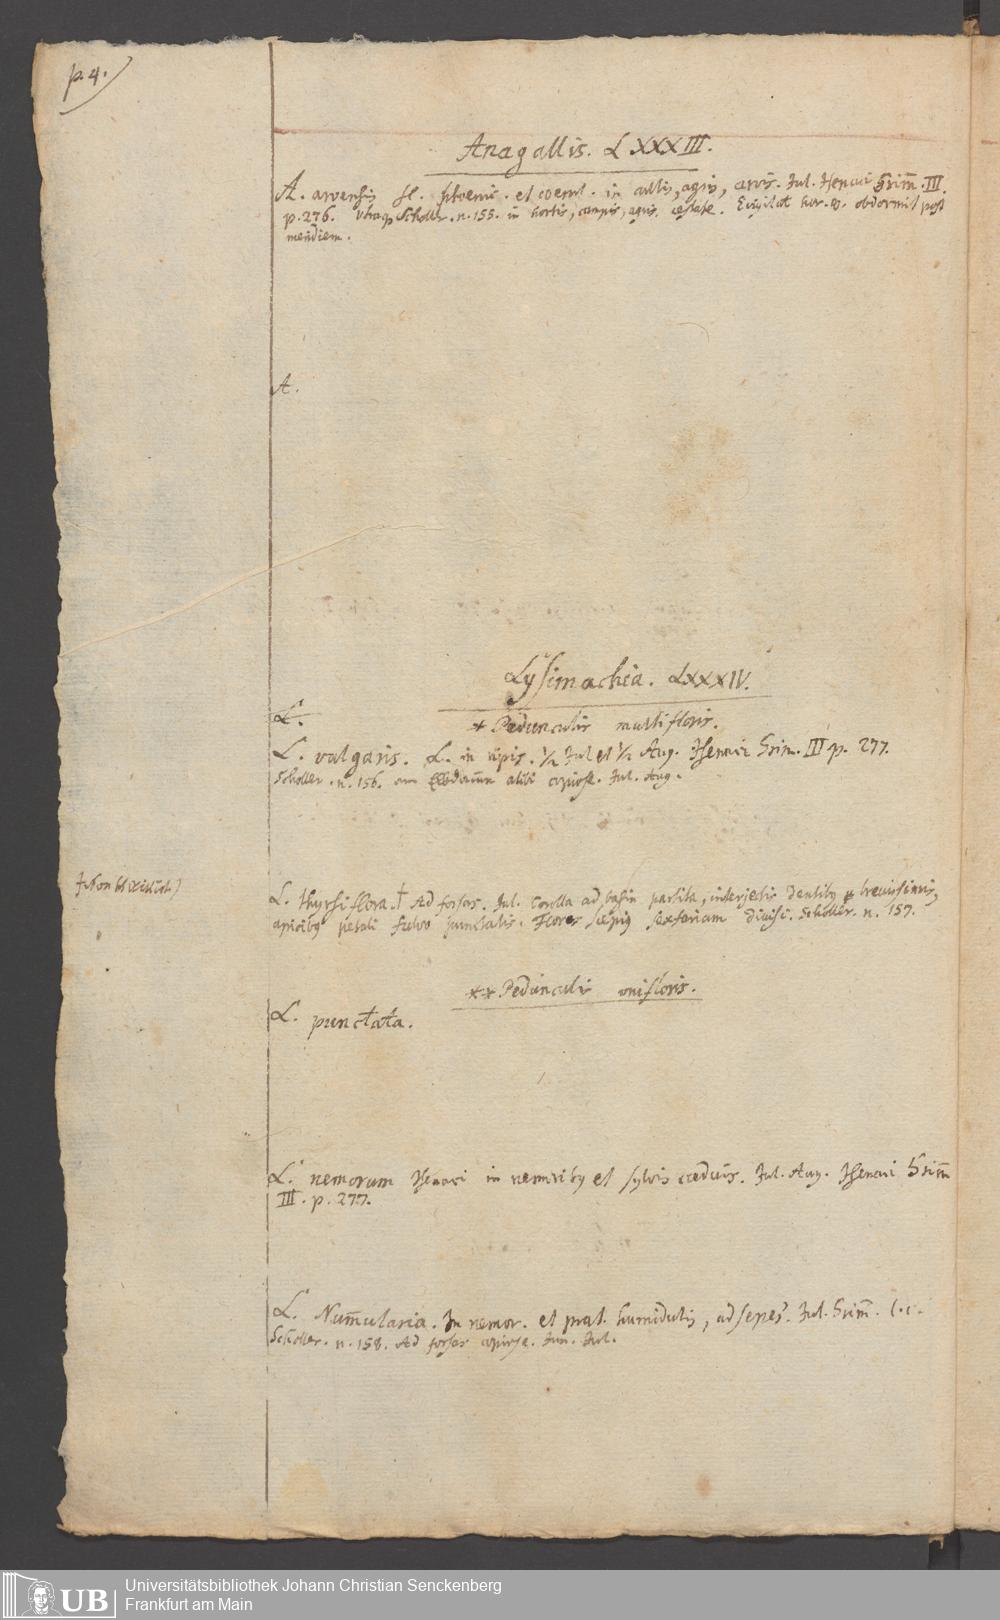 p. 4.
Anagallis. LXXXIII.
A. arvensis fl. phoenic. et coerul. in cultis, agris, arvis. Jul. Grim̄. III.
p. 276. utraq Scholler. n. 155. in hortis, campis, agris, æstate. Evigilat hor. obdormit post
meridiem.
A.
Lysimachia. LXXXIV.
L.
* Pedunculis multifloris.
L. vulgaris. L. in ripis. ½ Jul et ½ Aug. Grim. III p. 277.
Scholler. n. 156. alibi copiose. Jul. Aug.
L. thyrsiflora. † Ad fossas. Jul. Corolla ad basin partita, interjectis dentibg brevissimis,
apicibg petali fulvo punctatis. Flores sæpig sexfariam divisi. Scholler. n. 157.
** Pedunculis unifloris.
L. punctata.
L. nemorum in nemoribg et sylvis cæduis. Jul. Aug. Grim̄
III. p. 277.
L. Num̄ularia. In nemor. et prat. humidulis, ad sepes. Jul. Grim̄. l. c.
Scholler. n. 158. Ad fossas copiose. Jun. Jul.
Universitätsbibliothek Johann Christian Senckenberg
Frankfurt am Main
UB